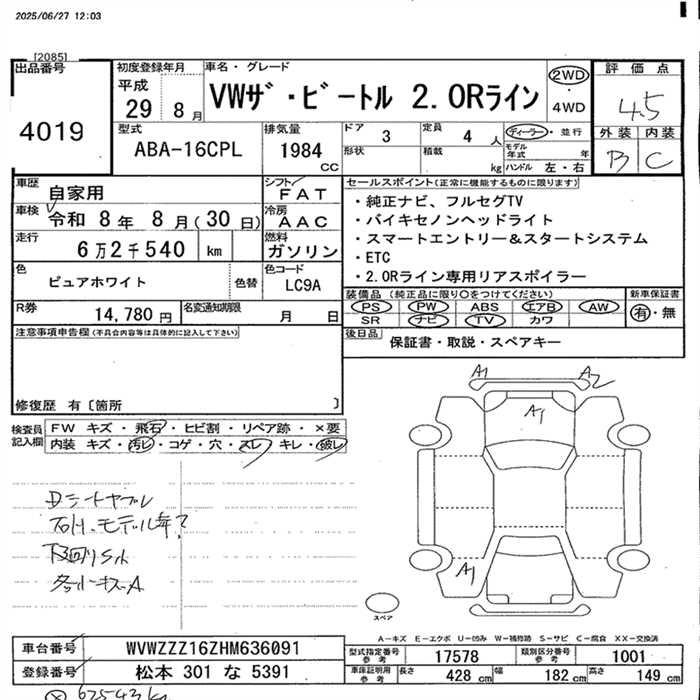 2025/06/27 12:03
[2085]
出品番号
4019
初度登録年月
平成
29 8月
車名・グレード
VWザ・ビートル 2.0Rライン
2WD
・
4WD
評価点
4.5
外装 内装
B C
型式
ABA-16CPL
排気量
1984
CC
ドア 3
定員 4 人
形状
積載 kg
ディーラー・並行
モデル年式 年
ハンドル 左・右
車歴
自家用
シフト
FAT
車検
令和 8年 8月(30日)
冷房
AAC
走行
6万2千540 km
燃料
ガソリン
色
ピュアホワイト
色替
色コード
LC9A
R券
14,780円
名変通知期限
月 日
セールスポイント(正常に機能するものに限ります)
・純正ナビ、フルセグTV
・バイキセノンヘッドライト
・スマートエントリー&スタートシステム
・ETC
・2.0Rライン専用リアスポイラー
装備品(純正品に限り○をつけてください)
PS PW ABS エアB AW
SR ナビ TV カワ
新車保証書
有・無
後日品
保証書・取説・スペアキー
注意事項申告欄(不具合内容等は具体的に記入して下さい)
修復歴 有〔箇所 〕
検査員
記入欄
FW キズ・飛石・ヒビ割・リペア跡・×要
内装 キズ・汚レ・コゲ・穴・スレ・キレ・破レ
A1
A2
A1
A1
下回りサビ
スペア
A-キズ E-エクボ U-凹み W-補修跡 S-サビ C-腐食 XX-交換済
車台番号
WVWZZZ16ZHM636091
登録番号
松本 301 な 5391
型式指定番号
参考
17578
類別区分番号
参考
1001
車庫証明用
参考
長さ 428cm
幅 182cm
高さ 149cm
62543km